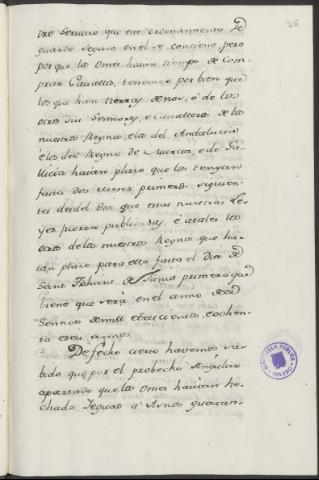 26
tro servicio que este ordenamiento se
guarde segun en el se contiene, pero
por que los Omes haian tiempo de Com
prar Cavallos, tenemos por bien que
los que han tierras de nos, ó de los
otros sus Señores, é Cavalleros de los
nuestros Regnos, é los del Andalucia
é los del Regno de Murcia, é de Ga
llicia haian plazo que los tengan
fasta dos meses primeros siguien
tes desde el dia que estas nuestras Le
yes fueren publicadas, é á todos los
otros de los nuestros Regnos que ha
ian plazo para ello fasta el dia de
Sant Johane de Junio primero que
biene que será en el anno del
Sennor de mill é trescientos, é ochen
ta é seis annos.
De fecho cierto havemos sa
bido que por el probecho singular
apartado que los Omes havian he
chado Yeguas á Asnos guaran
BIBLIOTECA PUBLICA
TOLEDO